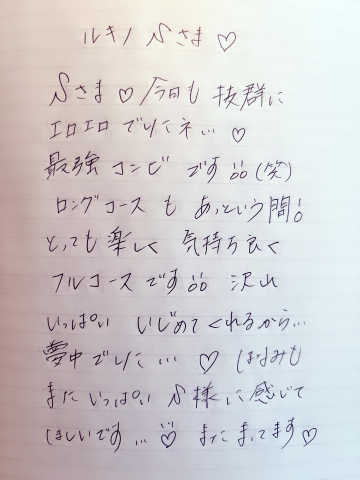 ルキノ Sさま♡
Sさま♡今日も 抜群に
エロエロ でしたネ… ♡
最強 コンビ です!!(笑)
ロングコース も あっという間!
とっても 楽しく 気持ち良く
フルコース です!! 沢山
いっぱい いじめてくれるから…
夢中 でした … ♡ はるみも
また いっぱい S様に感じて
ほしいです … ♡ また まってます♡